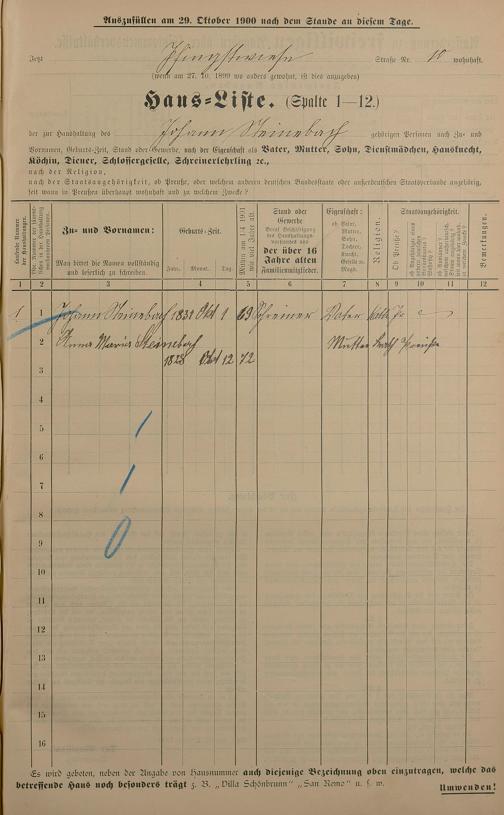 Auszufüllen am 29. Oktober 1900 nach dem Stande an diesem Tage.
Jetzt Pfingstwiese Straße Nr. 10 wohnhaft.
(wenn am 27. 10. 1899 wo anders gewohnt, ist dies anzugeben)
Haus-Liste. (Spalte 1—12.)
der zur Haushaltung des Johann Steinebach gehörigen Personen nach Zu- und
Vornamen, Geburts-Zeit, Stand oder Gewerbe, nach der Eigenschaft als Vater, Mutter, Sohn, Dienstmädchen, Hausknecht,
Köchin, Diener, Schlossergeselle, Schreinerlehrling ꝛc.,
nach der Religion,
nach der Staatsangehörigkeit, ob Preuße, oder welchem anderen deutschen Bundesstaate oder außerdeutschen Staatsverbande angehörig,
seit wann in Preußen überhaupt wohnhaft und zu welchem Zwecke?
Laufende Nummer der Haushaltungen.
Zu- und Vornamen:
Man bittet die Namen vollständig und leserlich zu schreiben.
Geburts-Zeit.
Jahr. Monat. Tag.
Mithin am 1/4 1901 wie viel Jahre alt.
Stand oder Gewerbe
der über 16 Jahre alten Familienmitglieder.
Eigenschaft:
ob Vater, Mutter, Sohn, Tochter, Knecht, Geselle od. Magd.
Religion.
Staatsangehörigkeit.
Ob Preuße?
Bemerkungen.
1 2 3 4 5 6 7 8 9 10 11 12
1 1 Johann Steinebach 1831 Okt 1 69 Schreiner Vater Kath Pr
2 Anna Maria Steinebach Mutter Kath Preuße
3 1828 Okt 12 72
4
5
6
7
8
9
10
11
12
13
14
15
16
1
1
0
Es wird gebeten, neben der Angabe von Hausnummer auch diejenige Bezeichnung oben einzutragen, welche das
betreffende Haus noch besonders trägt z. B. „Villa Schönbrunn" „San Remo" u. s. w.
Umwenden!